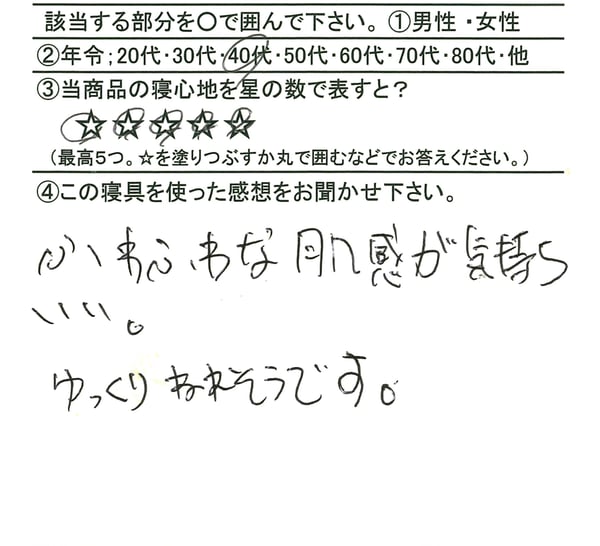 該当する部分を○で囲んで下さい。 ①男性 ・女性
②年令；20代・30代・40代・50代・60代・70代・80代・他
③当商品の寝心地を星の数で表すと？
☆☆☆☆☆
（最高5つ。☆を塗りつぶすか丸で囲むなどでお答えください。）
④この寝具を使った感想をお聞かせ下さい。
ふわふわな肌感が気持ち
いい。
ゆっくりねれそうです。